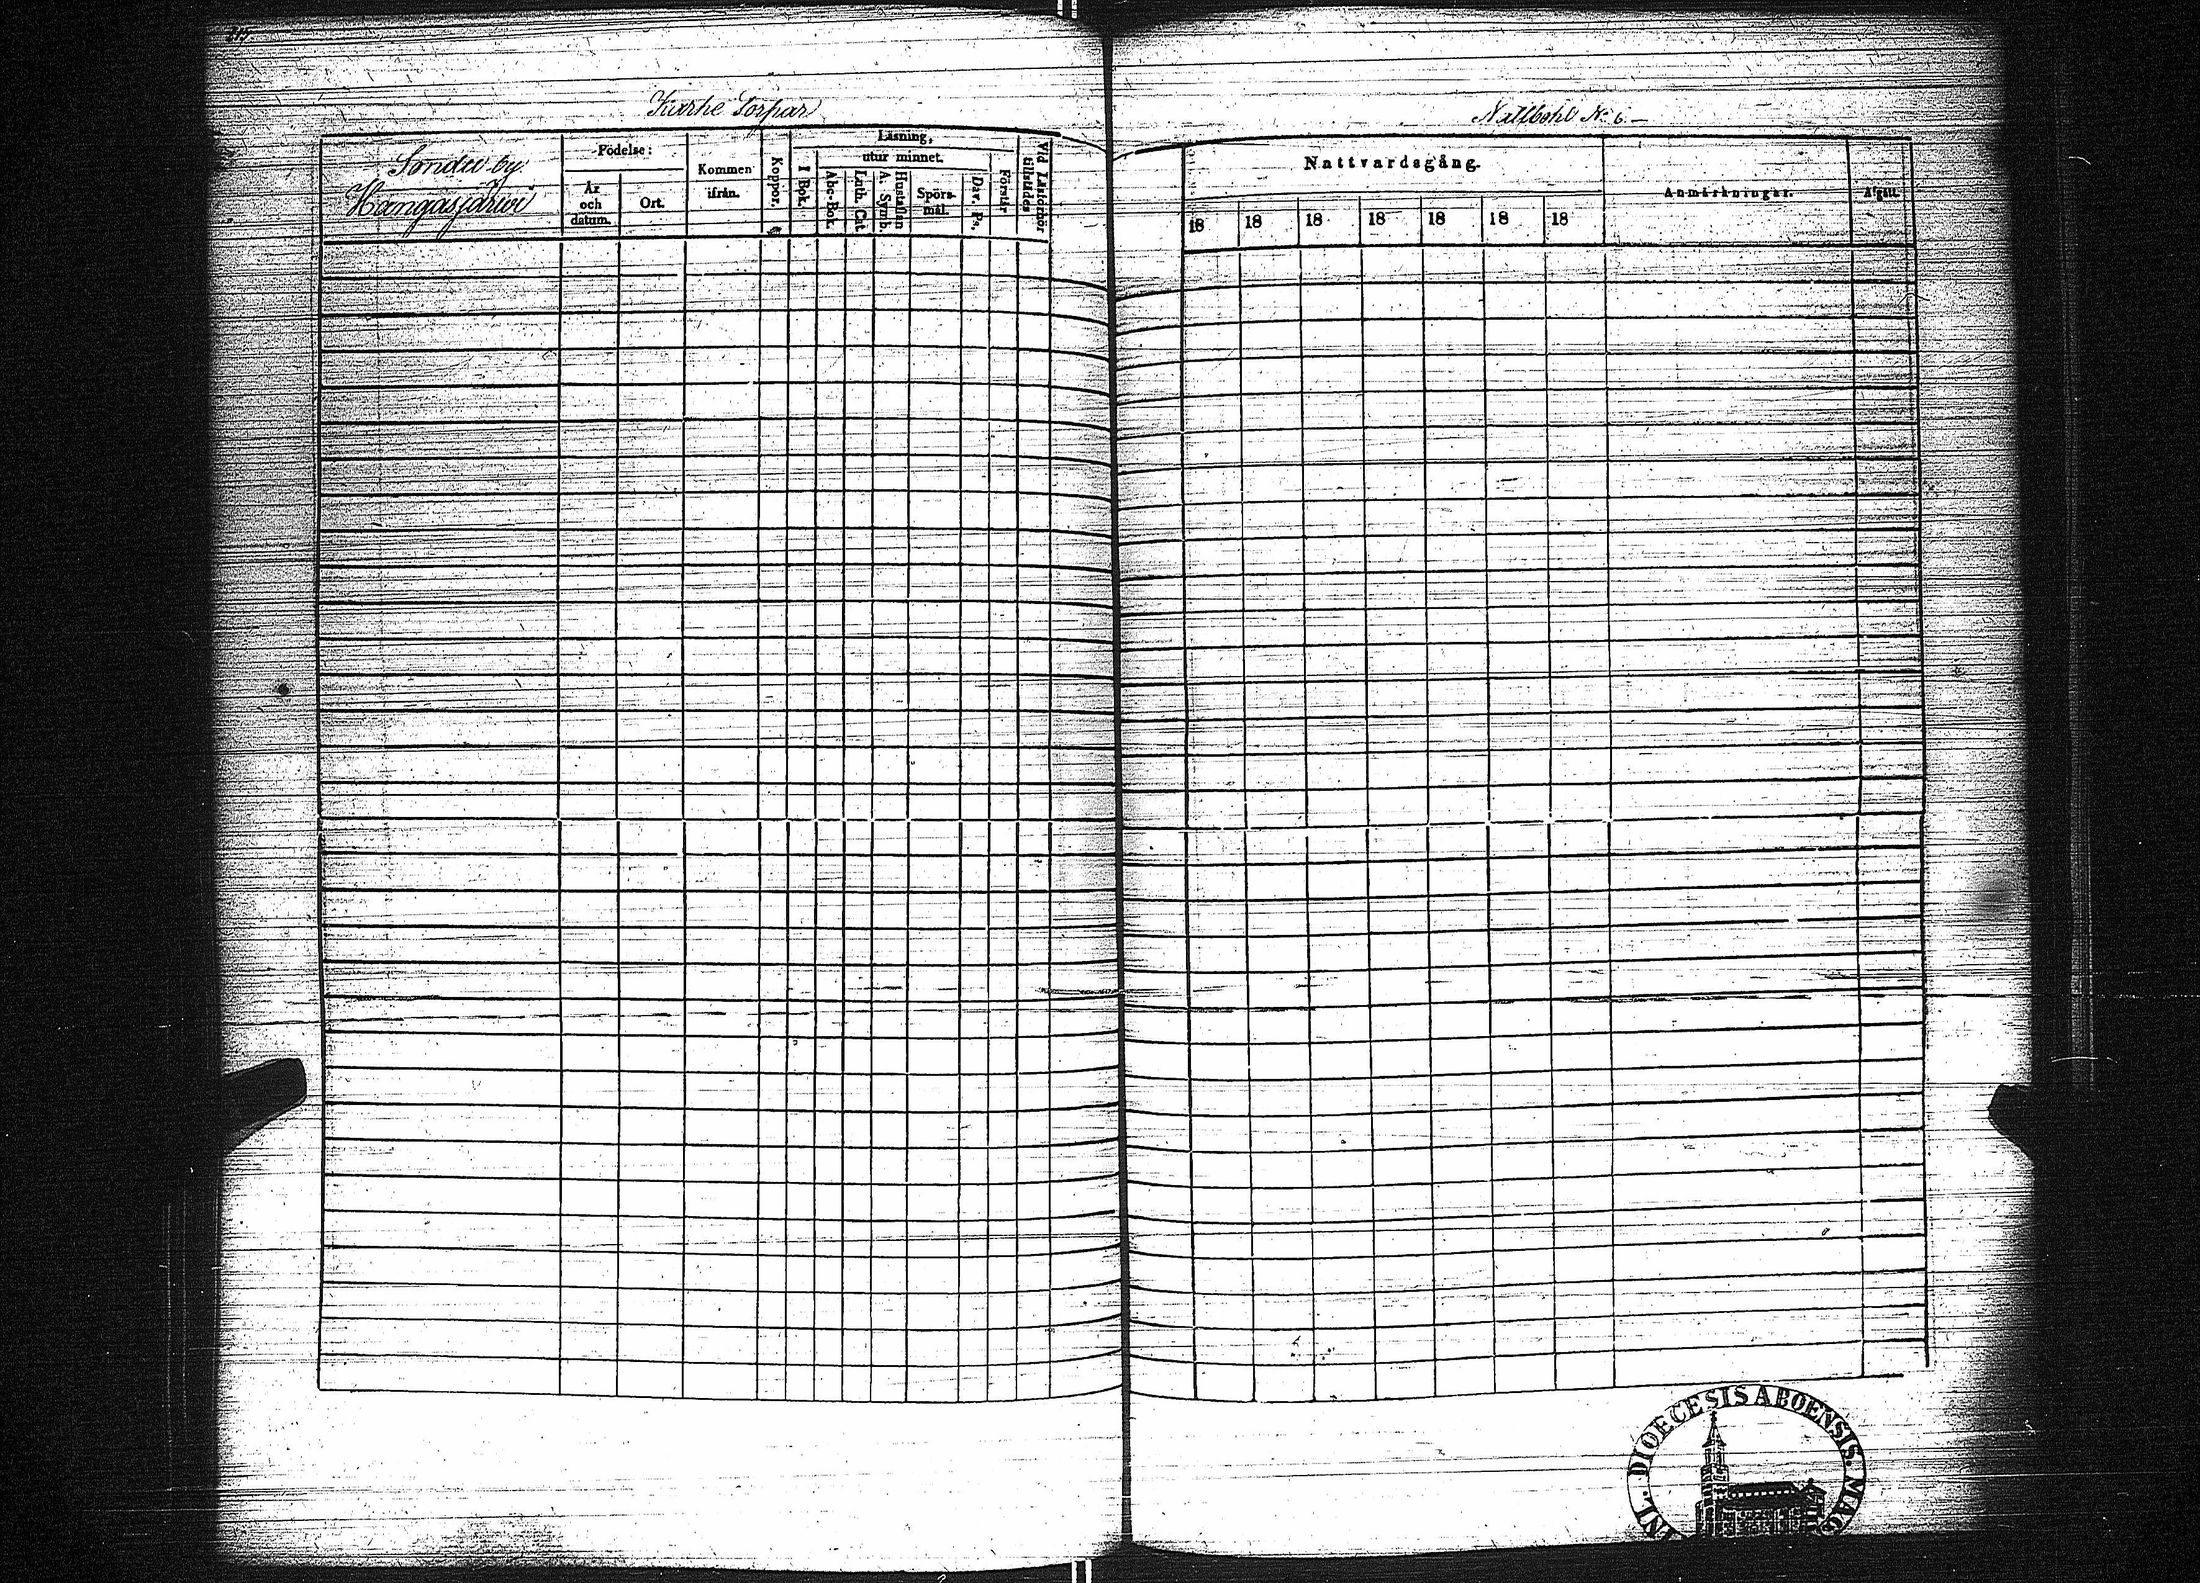 Karhe Torpar
Sondu by
Hangasjärvi
Födelse:
År
och
datum.
Ort.
Kommen
ifrån.
Koppor.
Läsning,
I Bok.
utur minnet.
Abc-Bok.
Luth. Cat.
Hustaflan
A. Symb.
Spörs-
mål.
Dav. Ps.
Förstår
Vid Läsförhör
tillstädes
Nattvardsgång.
18 18 18 18 18 18 18
Anmärkningar.
Afgått.
DIOECESIS ABOENSIS. MAG